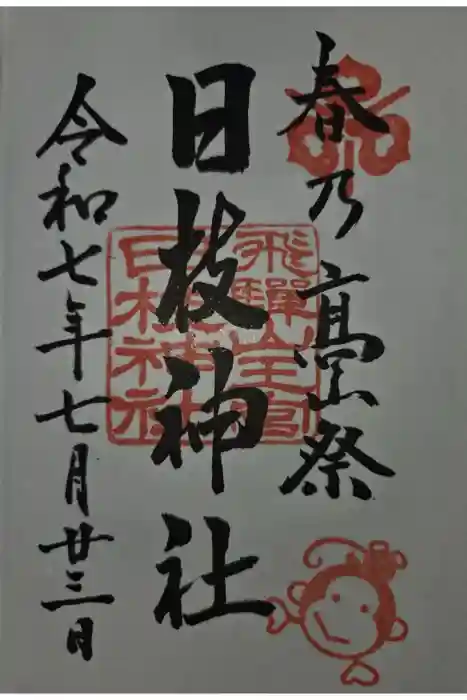 春乃高山祭
日枝神社
飛騨全宮
日枝神社
令和七年七月廿三日